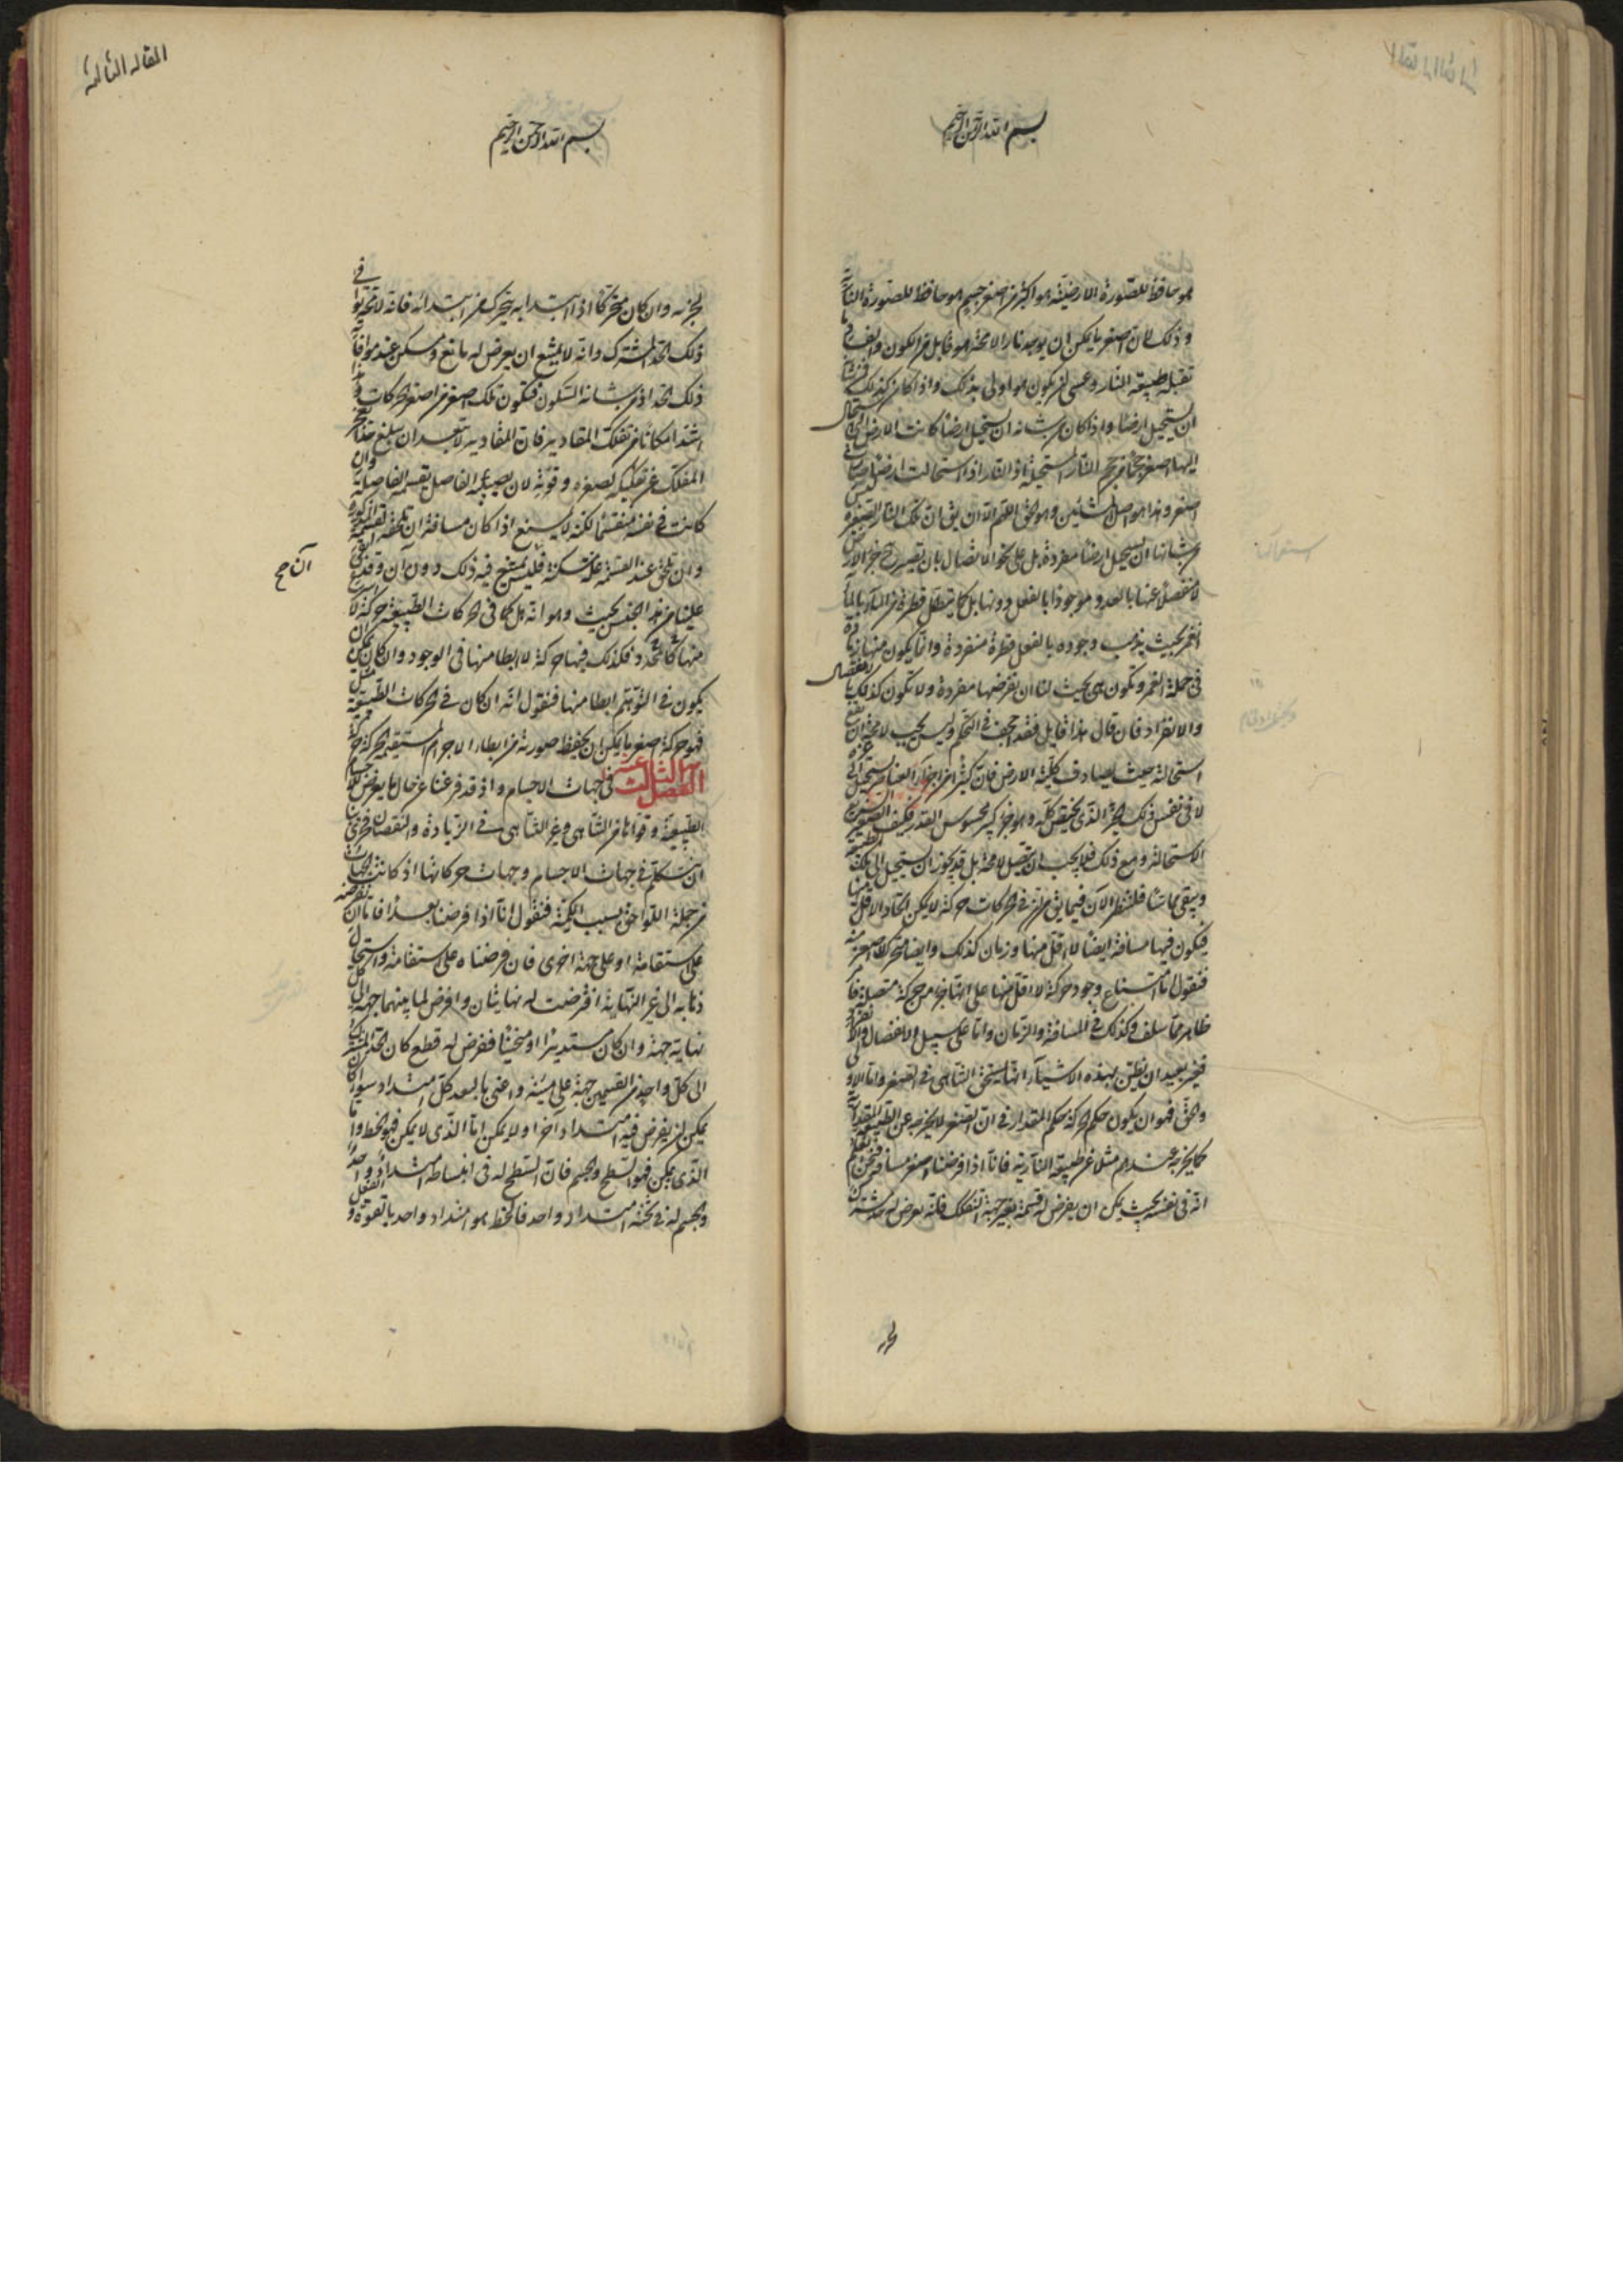 بسم الله الرحمن الرحيم
هو حافظ للصورة الارضية هو اكبر من اصغر جسم هو حافظ للصورة النارية
وذلك لان اصغر ما يمكن ان يوجد نارا لا محالة هو قابل من الكون والفساد ما
تقبله طبيعة النار وعسى ان يكون هو اولى بذلك واذا كان كذلك فمن شأنه
ان يستحيل ارضا واذا كان من شانه ان يستحيل ارضا كانت الارض التي استحال
اليها اصغر حجما من حجم النار المستحيلة اذ النار اذا استحالت ارضا صارت
اصغر وهذا هو اصل المشائين وهو الحق اللهم الا ان يق ان تلك النار الصغيرة ليس
من شانها ان تستحيل ارضا مفردة بل على نحو الاتصال بان تصير جزء الارض
لا منفصلا عنها بالحد وموجودا بالفعل دونها بل كما يتصل قطرة من الماء بالماء
الغمر بحيث يذهب وجوده بالفعل قطرة منفردة وانما يكون منها زيادة
في جملة الغمر وتكون هي بحيث لنا ان نفرضها مفردة ولا تكون كذلك بالانفصال
والانفراد فان قال هذا قايل فقد اجحف في التحكم وليس يجب لا محالة ان تقع
استحالته حيث يصادف كلية الارض فان كثيرا من اجزاء العناصر يستحيل الى غيره
لا في نفس ذلك الجزء الذي يخص كله وهو جزء كبير محسوس القدر فكيف الصغير
الاستحالة ومع ذلك فلا يجب ان يتصل لا محالة بل قد يجوز ان يستحيل الى تلك الطبيعة
ويبقى مماسا فلننظر الان فيما يق من ان في الحركات حركة لا يمكن ايجاد الاقل منها
فيكون فيها مسافة ايضا لا اقل منها وزمان كذلك وايضا متحرك لا اصغر منه
فنقول اما امتناع وجود حركة لا اقل منها على انها جزء من حركة متصلة فامر
ظاهر مما سلف وكذلك في المسافة والزمان واما على سبيل الانفصال والانفراد
فغير بعيد ان يظن بهذه الاشياء انها تستحق التناهي في الصغر واما الاولى
والحق فهو ان يكون حكم الحركة حكم المقدار في ان الصغر لا يخرجه عن الطبيعة المقدارية
كما يخرجه عندهم مثلا عن طبيعة النارية فانا اذا فرضنا اصغر مسافة فنحن نعلم
انه في نفسه بحيث يمكن ان يفرض له قسمة بغير جهة التفكك فلانه يعرض له حد مشترك
المقالة الثالثة
بسم الله الرحمن الرحيم
لجزئه وان كان متحركا اذا ابتدا به يتحرك من ابتدائه فانه لا محالة يوافي
ذلك الحد المشترك وانه لا يمتنع ان يعرض له مانع ومسكن عند موافاته
ذلك الحد اذ من شانه السكون فتكون تلك اصغر من اصغر الحركات وهذا
اشد امكانا من تفكك المقادير فان المقادير لا يبعد ان يبلغ حدا يعجز
المفكك عن تفكيكه لصغره وفوته لان يصيبه الفاصل بقسمة الفاصلة وان
كانت في نفسه منقسما لكنه لا يمتنع اذا كان مسافة ان تلحقه القسمة المذكورة
وان تلحق عند القسمة علة مسكنة فليس يمتنع فيه ذلك دون آن وقد بقي
آن صح
علينا من هذا الجنس بحث وهو انه هل كما في الحركات الطبيعية حركة لا اسرع
منها كالمحدد فكذلك فيها حركة لا ابطا منها في الوجود وان كان يمكن ان
يكون في التوهم ابطا منها فنقول انه ان كان في الحركات الطبيعية مثل
فهو حركة اصغر ما يمكن ان يحفظ صورته من ابطاء الاجرام المستقيمة الحركة حركة
الفصل الثالث عشر في جهات الاجسام واذ قد فرغنا عن حال ما يعرض للاجسام
الطبيعية وقواها من التناهي وغير التناهي في الزيادة والنقصان فحري بنا
ان نتكلم في جهات الاجسام وجهات حركاتها اذ كانت الجهات
من جملة اللواحق بسبب الكمية فنقول انا اذا فرضنا بعدا فاما ان نفرضه
على استقامة او على جهة اخرى فان فرضناه على استقامة واستحال
ذهابه الى غير النهاية افترضت له نهايتان وافرض لما بينهما جهة الى كل
نهاية جهة وان كان مستديرا او منحنيا ففرض له قطع كان الحد المشترك
الى كل واحد من القسمين جهة على ميزه واعني بالبعد كل امتداد سواء كان
يمكن ان يفرض فيه امتداد آخر او لا يمكن اما الذي لا يمكن فهو الخط واما
الذي يمكن فهو السطح والجسم فان السطح له في انبساطه امتداد واحد
والجسم له في ثخنه امتداد واحد فالخط هو امتداد واحد بالقوة والفعل